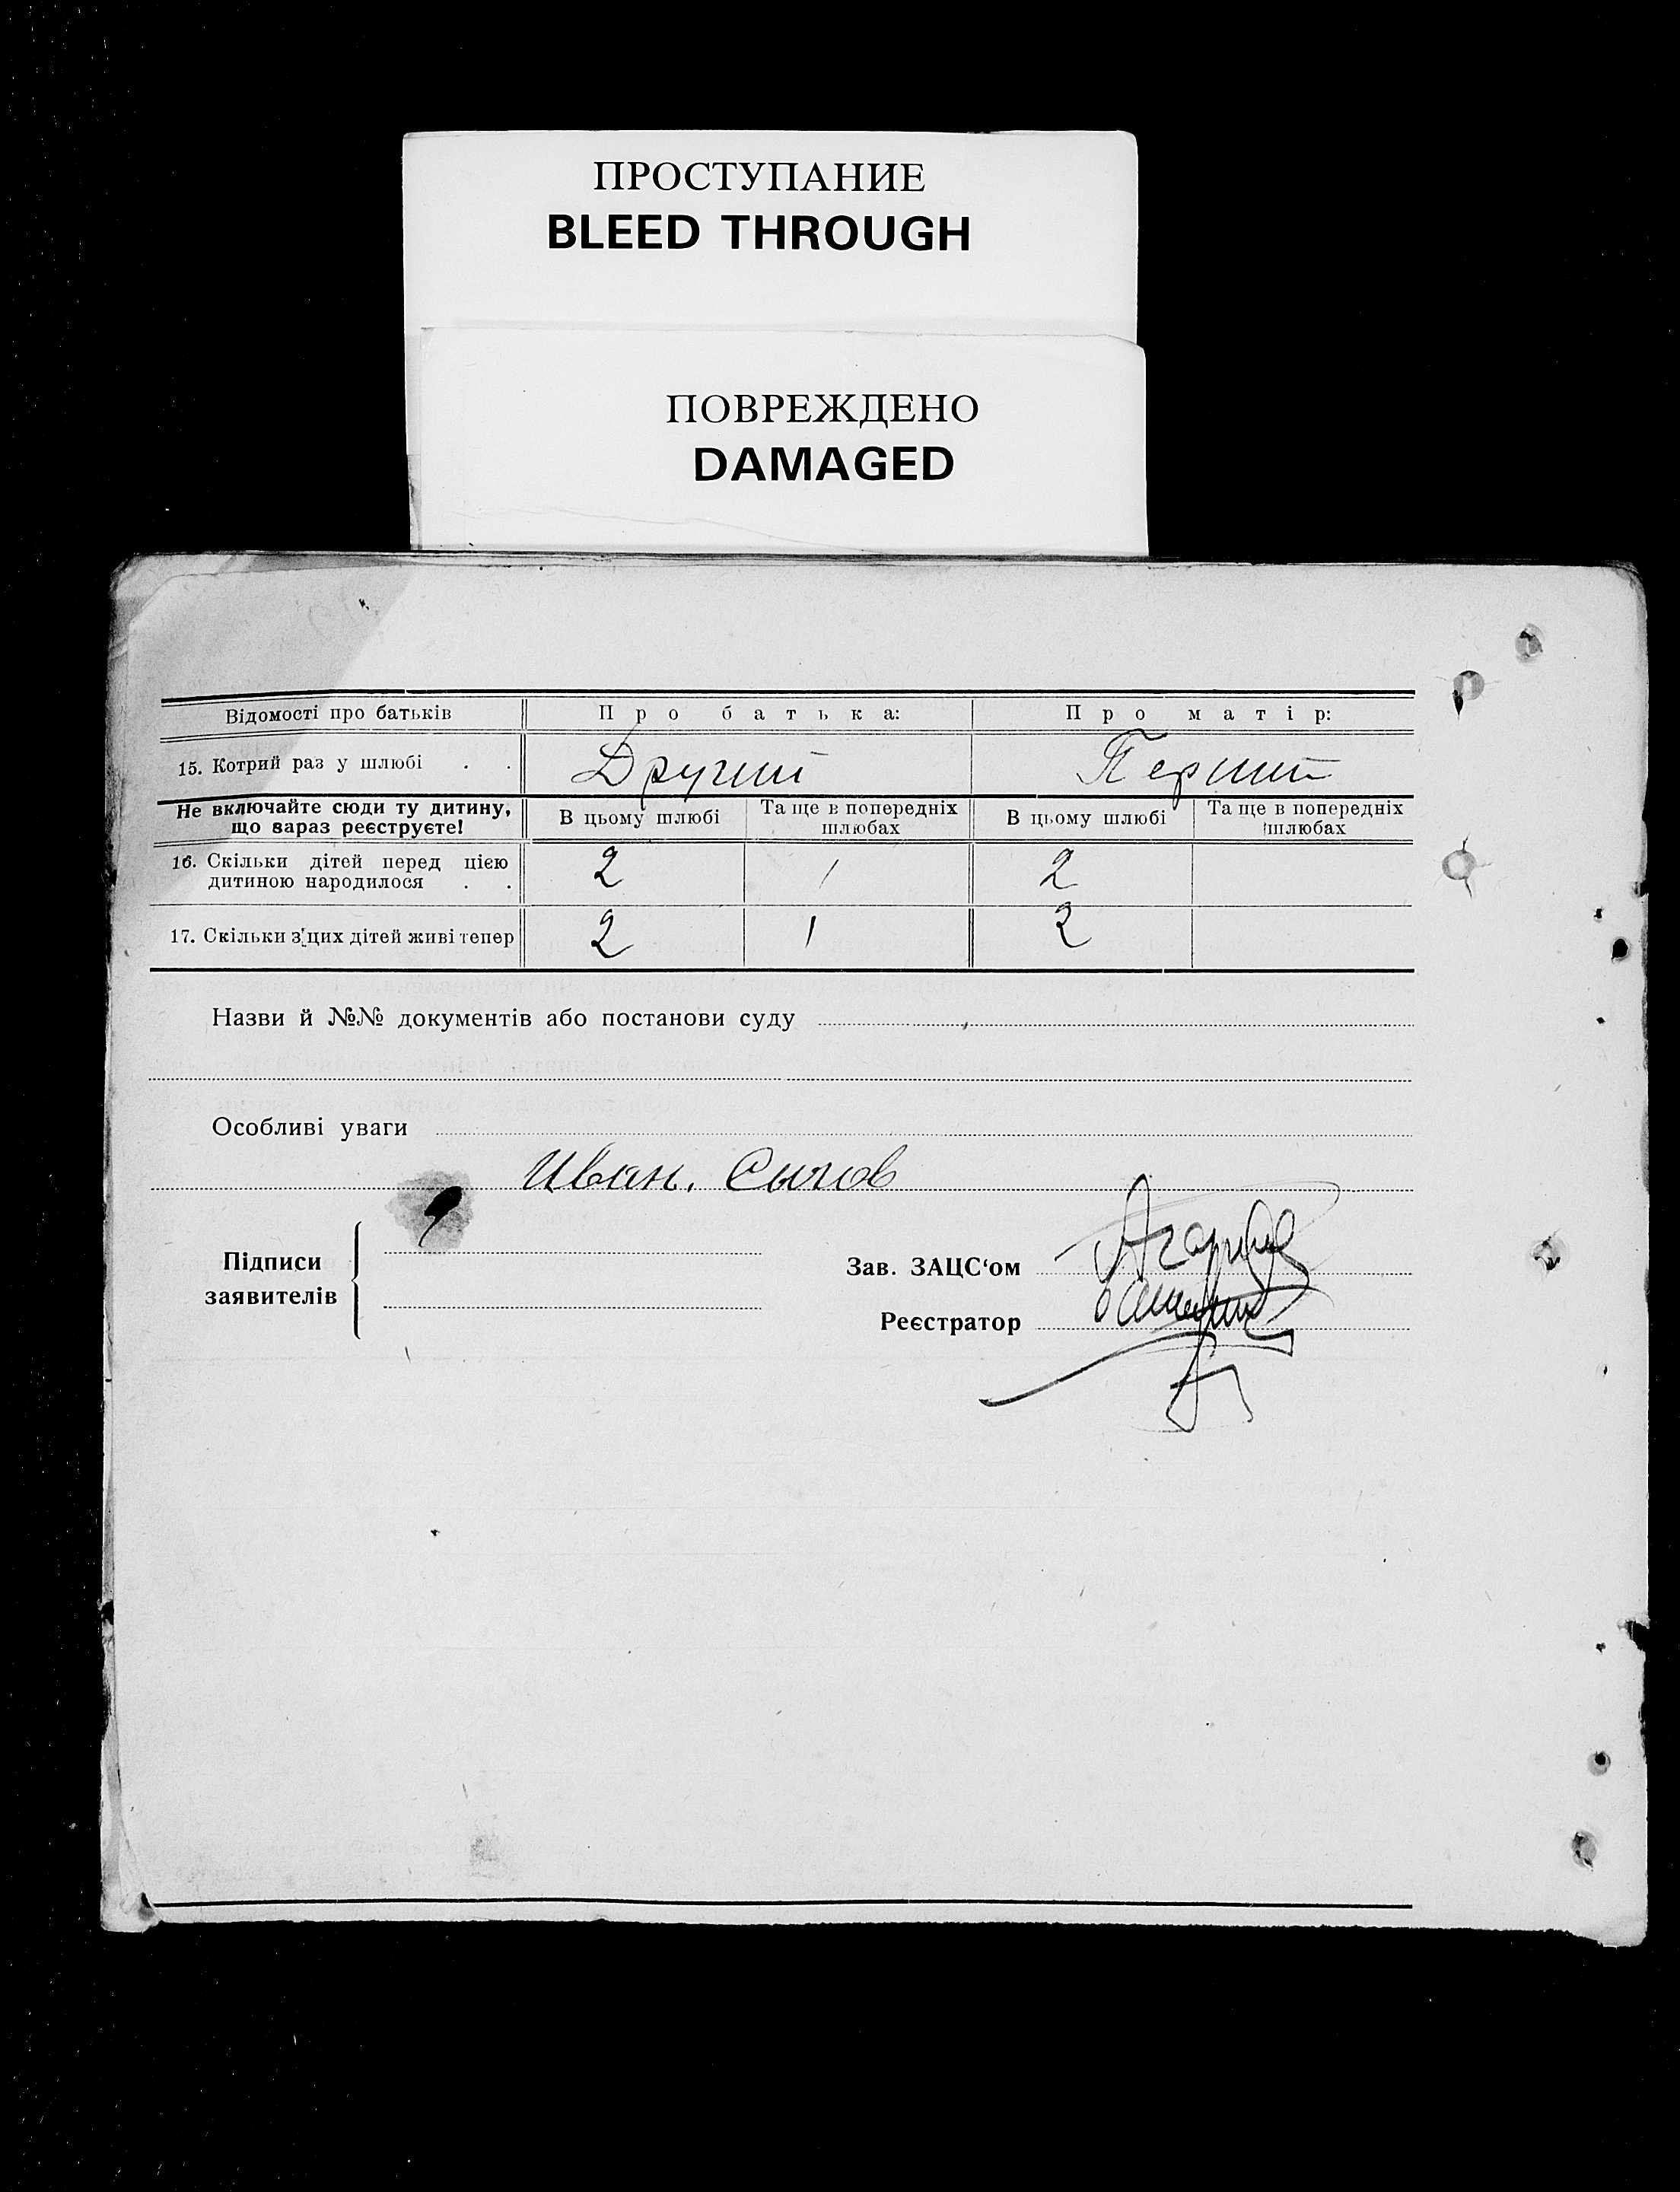 ПРОСТУПАНИЕ
BLEED THROUGH
ПОВРЕЖДЕНО
DAMAGED
Відомості про батьків Про батька: Про матір:
15. Котрий раз у шлюбі . . Другий Перший
Не включайте сюди ту дитину, що зараз реєструєте! В цьому шлюбі Та ще в попередніх шлюбах В цьому шлюбі Та ще в попередніх шлюбах
16. Скільки дітей перед цією дитиною народилося . . 2 1 2
17. Скільки з'цих дітей живі тепер 2 1 2
Назви й №№ документів або постанови суду
Особливі уваги
Иван. Сычов
Підписи заявителів
Зав. ЗАЦС‘ом
Реєстратор